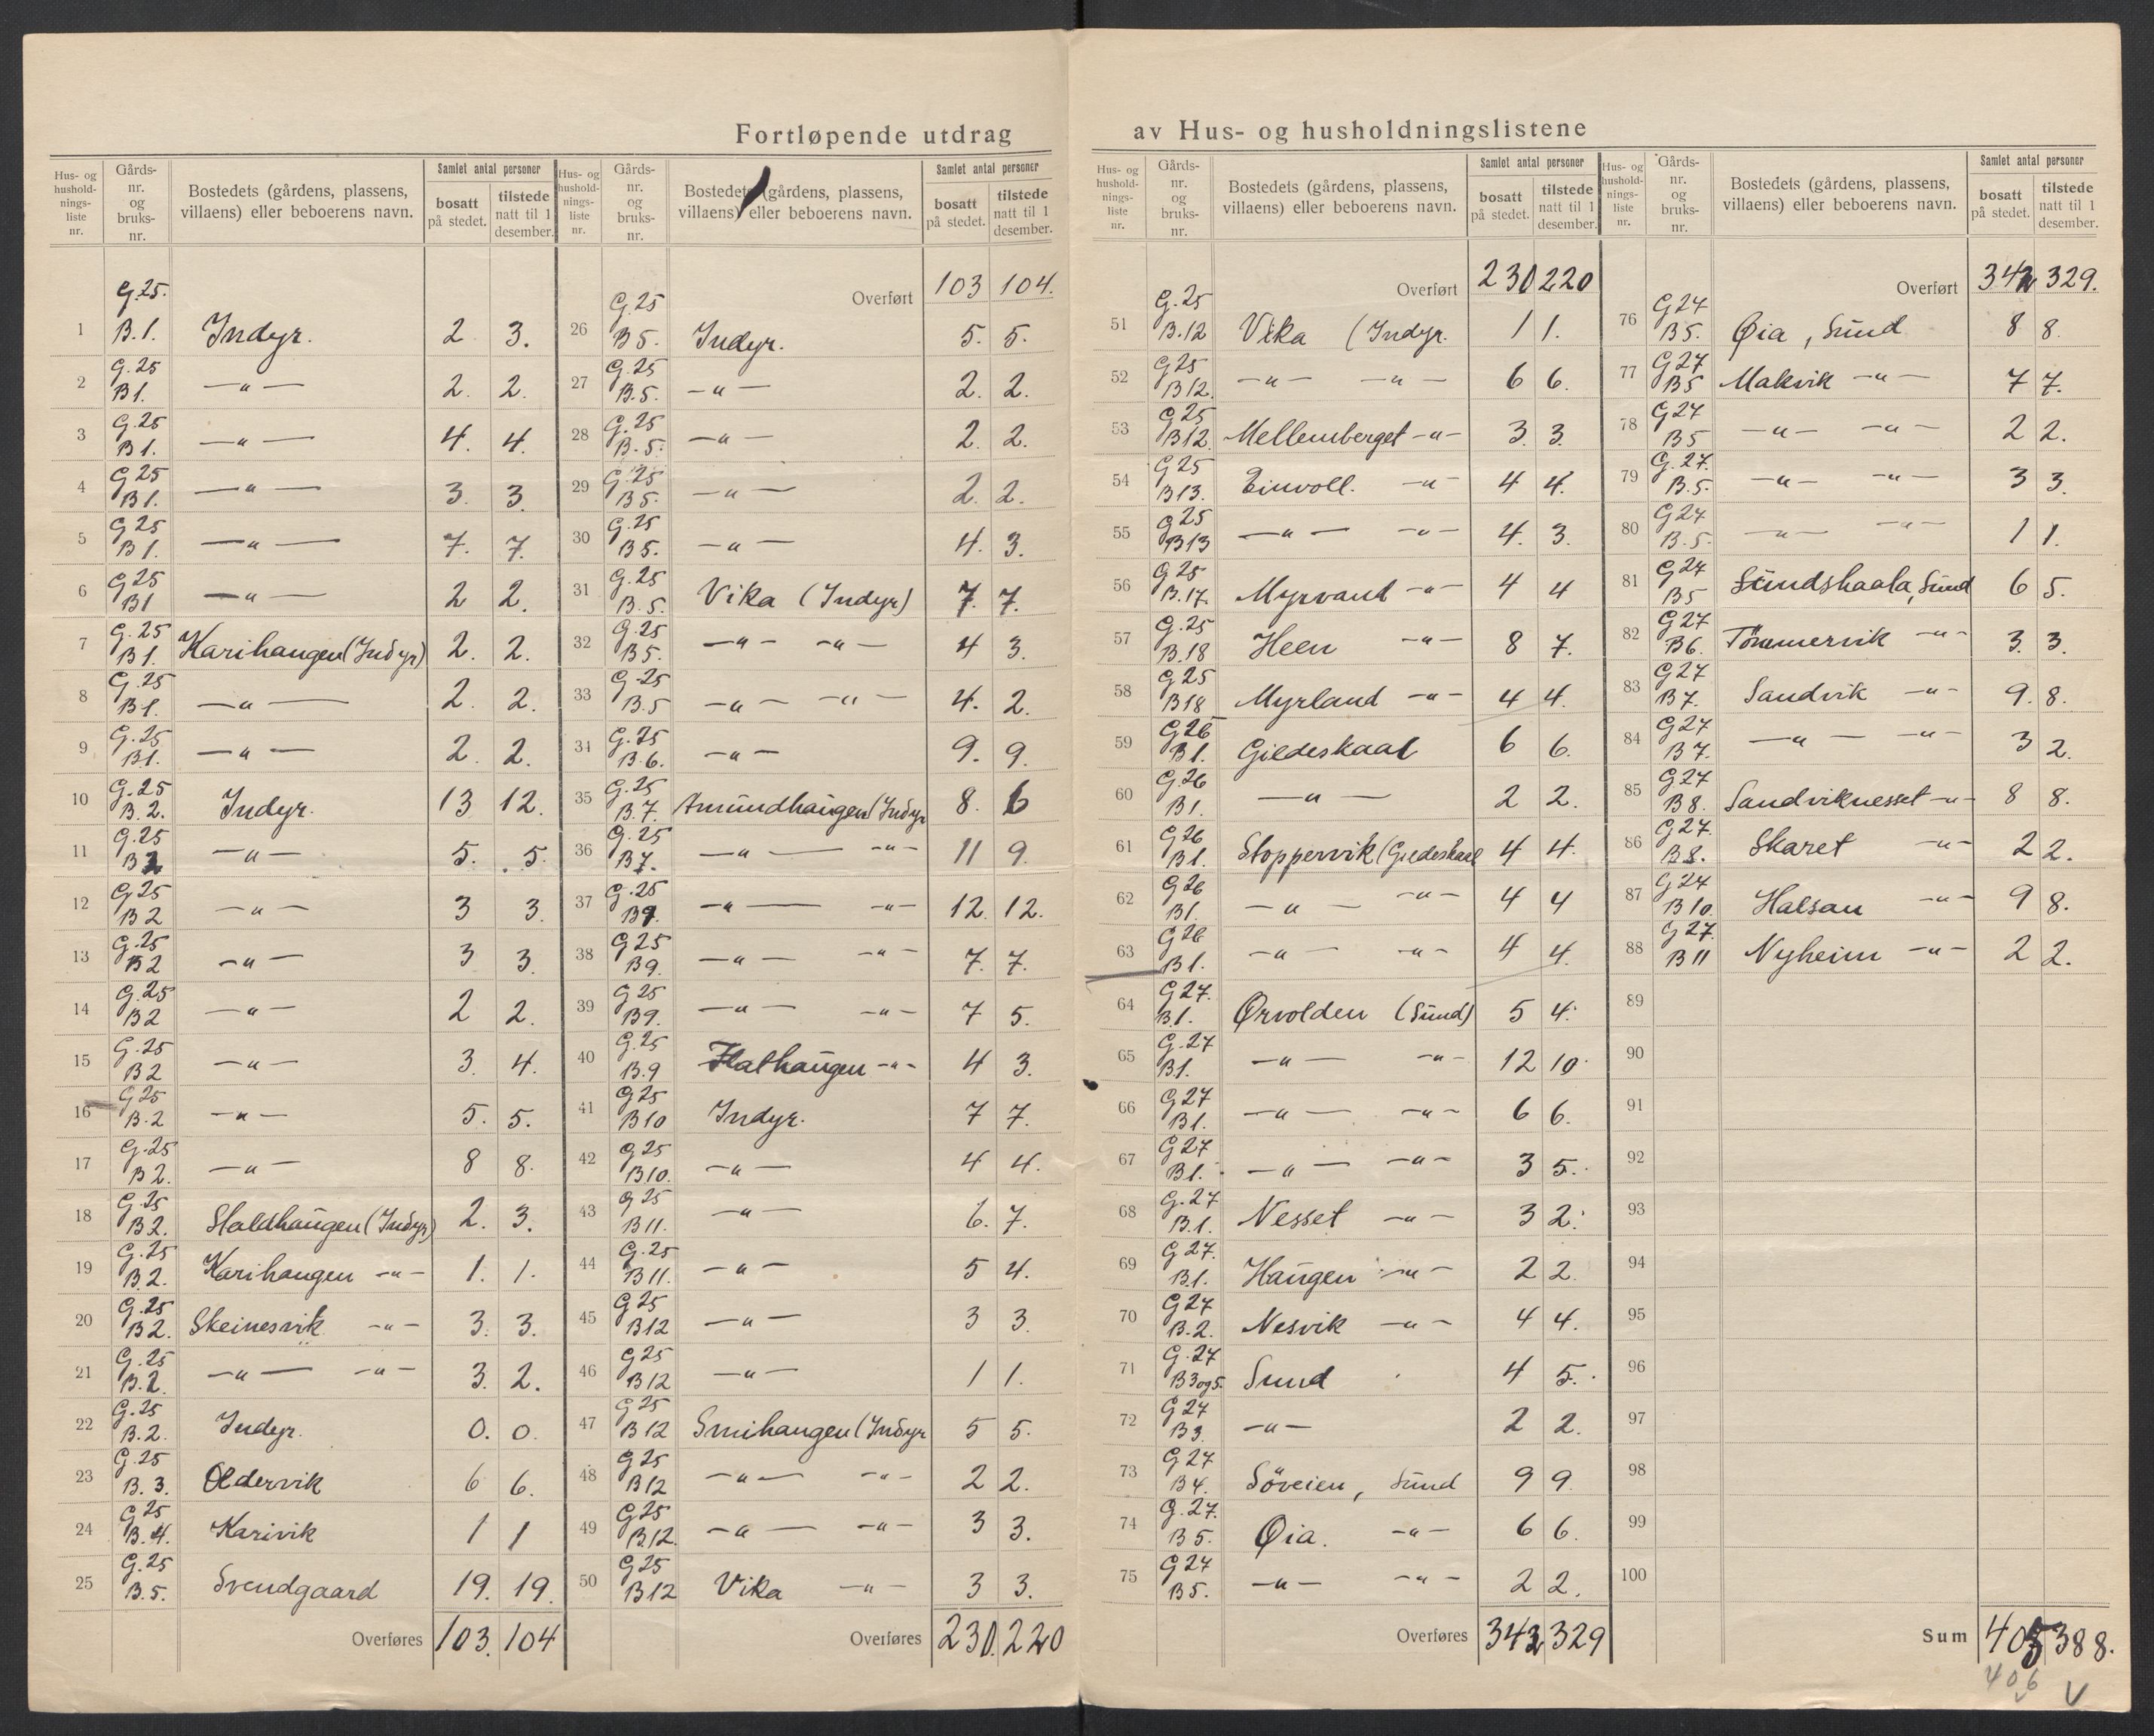 Fortløpende utdrag av Hus- og husholdningslistene
Hus- og hushold-nings-liste nr. | Gårds-nr. og bruks-nr. | Bostedets (gårdens, plassens, villaens) eller beboerens navn. | Samlet antal personer | bosatt på stedet. | tilstede natt til 1 desember.
1 G.25. B.1. Indyr. 2 3.
2 G.25 B1. —„— 2. 2.
3 G.25 B1. —„— 4. 4.
4 G25 B1. —„— 3. 3.
5 G25 B1. —„— 7. 7.
6 G25 B1 —„— 2 2.
7 G.25 B1. Karihaugen (Indyr) 2. 2.
8 G.25 B1. —„— 2. 2.
9 G.25 B1. —„— 2. 2.
10 G.25 B.2. Indyr. 13 12.
11 G.25 B2 —„— 5. 5.
12 G25 B2 —„— 3 3.
13 G.25 B2 —„— 3 3.
14 G.25 B2 —„— 2 2.
15 G.25 B2 —„— 3. 4.
16 G25 B.2 —„— 5. 5.
17 G.25 B2. —„— 8 8.
18 G.25 B2. Staldhaugen (Indyr) 2. 3.
19 G.25 B2. Karihaugen —„— 1. 1.
20 G.25 B2. Skeinesvik —„— 3. 3.
21 G.25 B.2. —„— —„— 3. 2.
22 G.25 B.2. Indyr. 0. 0.
23 G.25 B.3. Oldervik 6 6.
24 G25 B.4. Karivik 1 1
25 G.25 B.5. Svendgaard 19. 19.
Overføres 103. 104
Hus- og hushold-nings-liste nr. | Gårds-nr. og bruks-nr. | Bostedets (gårdens, plassens, villaens) eller beboerens navn. | Samlet antal personer | bosatt på stedet. | tilstede natt til 1 desember.
Overført 103 104.
26 G.25 B5. Indyr. 5. 5.
27 G.25 B.5. —„— 2. 2.
28 G.25 B.5. —„— 2. 2.
29 G.25 B5. —„— 2. 2.
30 G.25 B5. —„— 4. 3.
31 G.25 B.5. Vika (Indyr) 7. 7.
32 G.25 B5. —„— —„— 4 3.
33 G.25 B.5 —„— —„— 4. 2.
34 G.25 B.6. —„— 9. 9.
35 G.25 B.7. Amundhaugen (Indyr 8. 6
36 G.25 B7. —„— —„— 11 9.
37 G.25 B9. —„— —„— 12. 12.
38 G25 B9. —„— —„— 7. 7.
39 G25 B9. —„— —„— 7 5.
40 G.25 B.9 Flathaugen —„— 4 3.
41 G25 B10 Indyr. 7 7.
42 G25 B10. —„— 4 4.
43 G25 B11. —„— 6. 7.
44 G.25 B11. —„— 5 4.
45 G25 B12 —„— 3 3.
46 G25 B12 —„— 1 1.
47 G25 B12 Smihaugen (Indyr 5 5.
48 G25 B12 —„— —„— 2 2.
49 G25 B12. —„— —„— 3 3.
50 G25 B12 Vika —„— 3 3.
Overføres 230. 220
Hus- og hushold-nings-liste nr. | Gårds-nr. og bruks-nr. | Bostedets (gårdens, plassens, villaens) eller beboerens navn. | Samlet antal personer | bosatt på stedet. | tilstede natt til 1 desember.
Overført 230 220
51 G.25 B.12 Vika (Indyr. 1 1.
52 G25 B12. —„— —„— 6 6.
53 G25 B12 Mellemberget —„— 3. 3.
54 G25 B13. Einvoll. —„— 4 4.
55 G25 B13 —„— —„— 4. 3.
56 G25 B.17. Myrvand —„— 4 4
57 G.25 B.18 Heen —„— 8 7.
58 G25 B18 Myrland —„— 4 4.
59 G26 B1. Gildeskaal 6 6.
60 G.26 B1. —„— 2 2.
61 G26 B1. Stoppervik (Gildeskaal 4 4.
62 G26 B1. —„— —„— 4 4
63 G26 B1. —„— —„— 4 4.
64 G27. B.1. Ørvolden (Sund) 5 4.
65 G.27 B1. —„— —„— 12 10.
66 G27 B1. —„— —„— 6 6.
67 G27 B1. —„— —„— 3 5.
68 G.27 B.1. Nesset —„— 3 2.
69 G27. B.1. Haugen —„— 2 2.
70 G27 B.2. Nesvik —„— 4 4.
71 G.27 B3og5. Sund 4 5.
72 G27 B3. —„— 2 2.
73 G27 B4. Söveien, Sund 9 9.
74 G.27. B5. Øia. —„— 6 6.
75 G27 B5. —„— —„— 2 2.
Overføres 342 329
Hus- og hushold-nings-liste nr. | Gårds-nr. og bruks-nr. | Bostedets (gårdens, plassens, villaens) eller beboerens navn. | Samlet antal personer | bosatt på stedet. | tilstede natt til 1 desember.
Overført 342 329.
76 G27 B5. Øia, Sund 8 8.
77 G27 B5 Makvik —„— 7 7.
78 G27 B5 —„— —„— 2 2.
79 G.27. B.5. —„— —„— 3 3.
80 G27 B.5. —„— —„— 1 1.
81 G27 B5 Sundshaala, Sund 6 5.
82 G27 B6. Tömmervik —„— 3. 3.
83 G27 B7. Sandvik —„— 9. 8.
84 G27 B7. —„— —„— 3 2.
85 G27 B8. Sandviknesset —„— 8 8.
86 G27. B8. Skaret —„— 2 2.
87 G27 B10. Halsan —„— 9 8.
88 G27. B11 Nyheim —„— 2 2.
89
90
91
92
93
94
95
96
97
98
99
100
Sum 405 388.
406